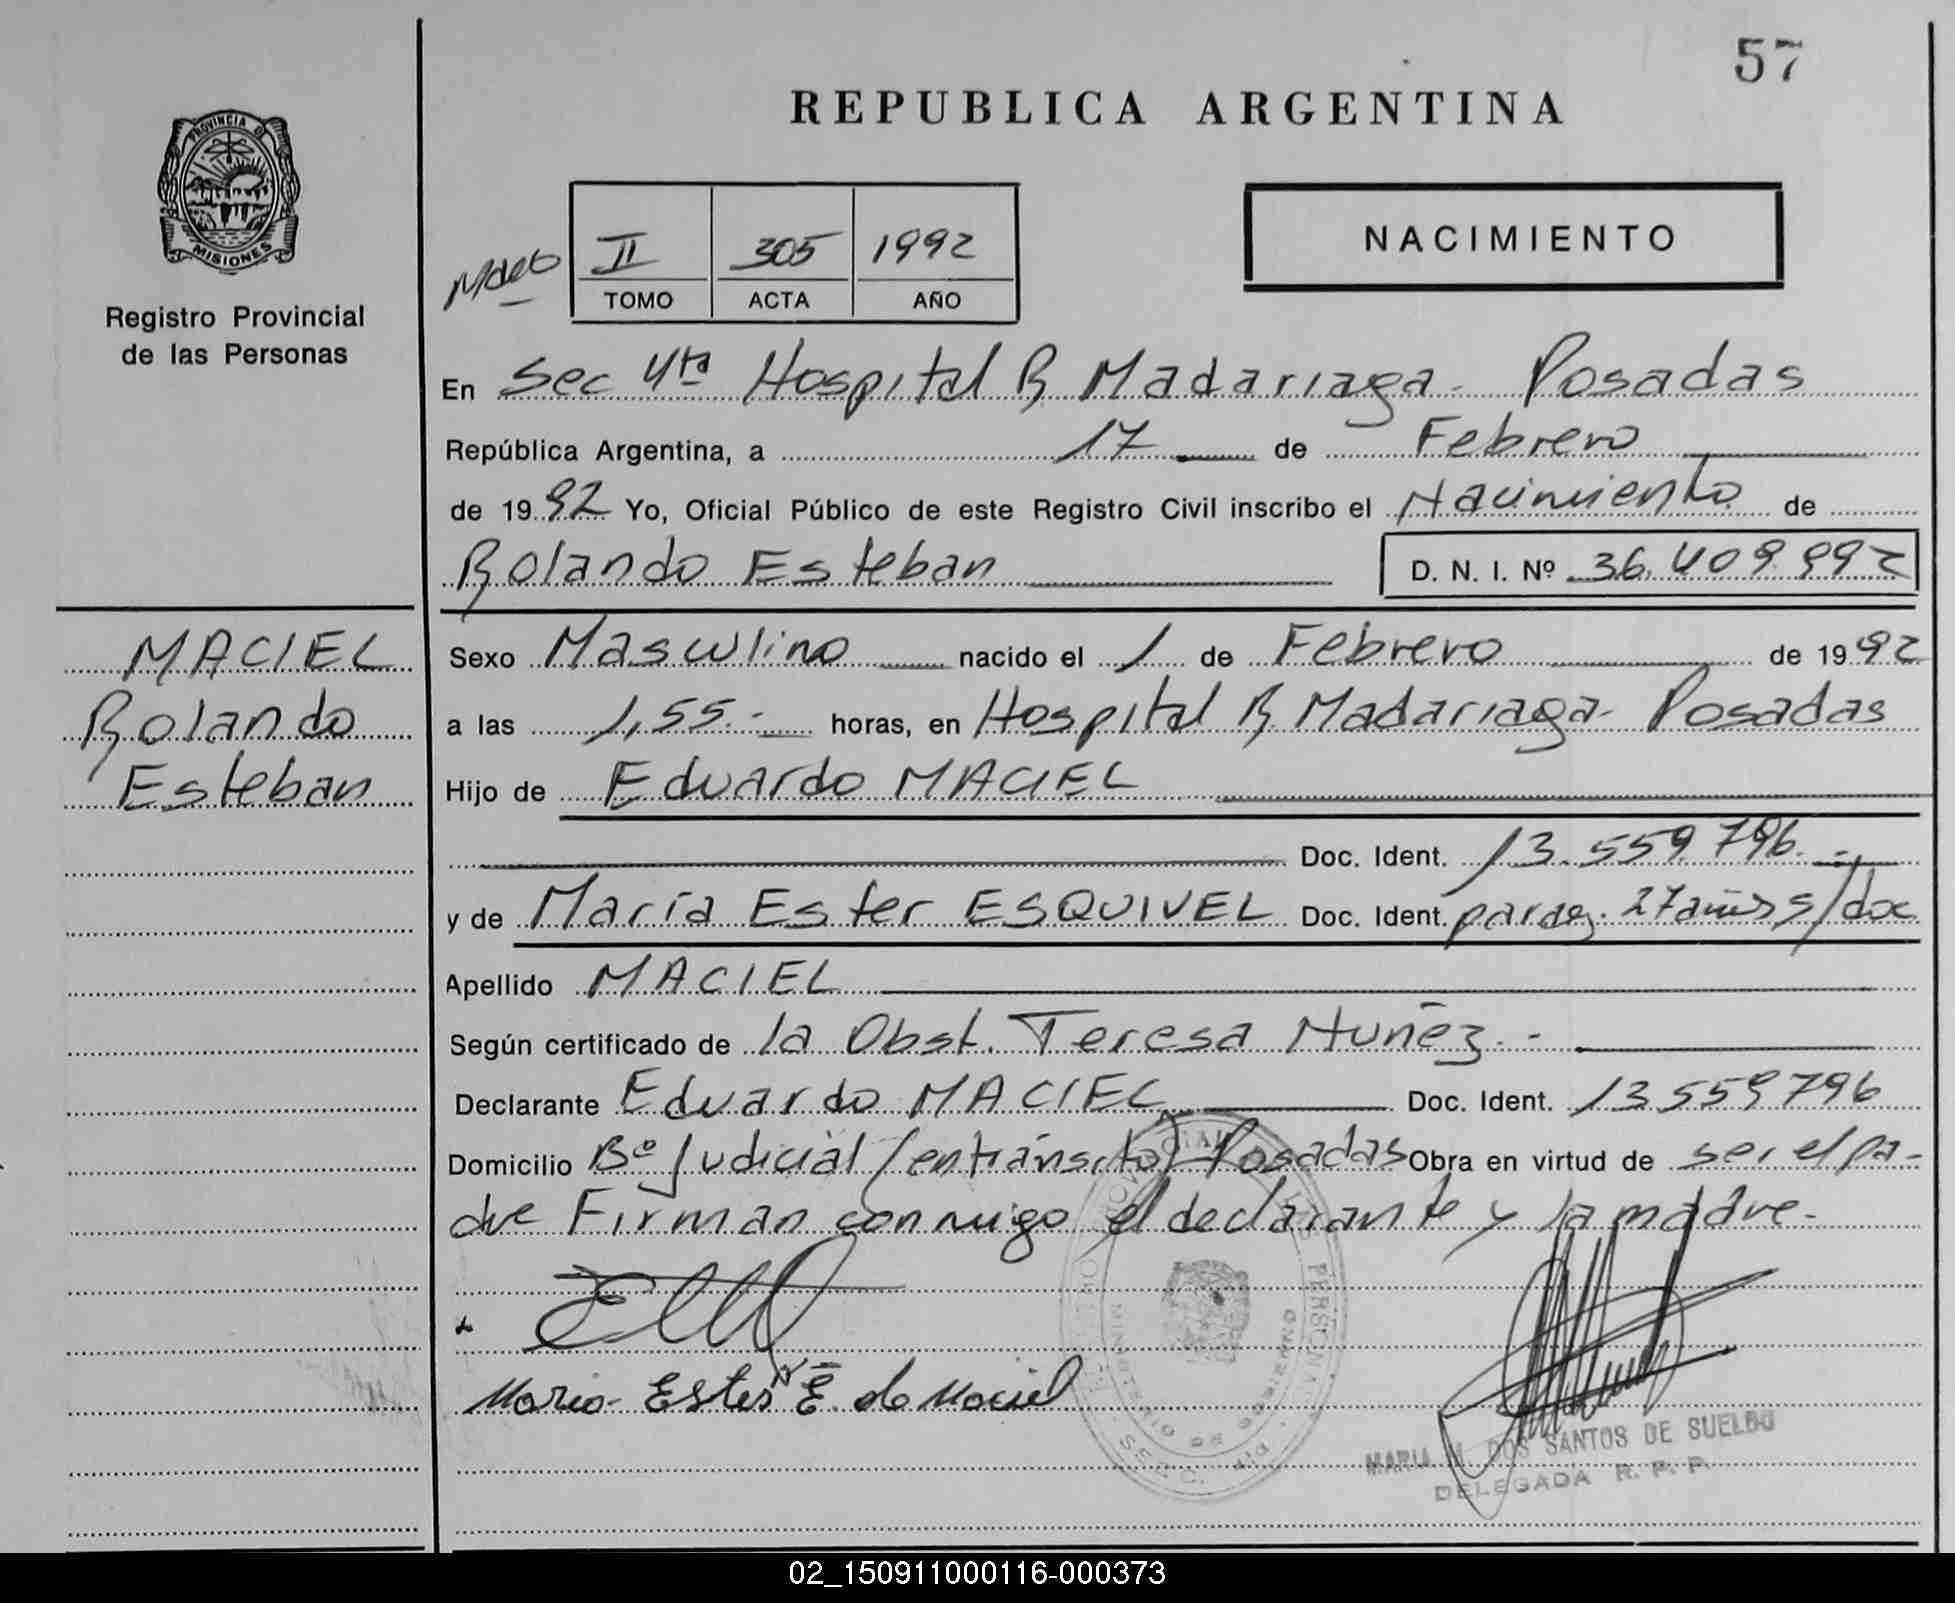 57
REPUBLICA ARGENTINA
PROVINCIA D
MISIONES
Registro Provincial
de las Personas
II 305 1992
TOMO ACTA AÑO
NACIMIENTO
En Sec 4ta Hospital R Madariaga - Posadas
República Argentina, a 17 de Febrero
de 1992 Yo, Oficial Público de este Registro Civil inscribo el Nacimiento de
Rolando Esteban D. N. I. Nº 36.409.992
MACIEL
Rolando
Esteban
Sexo Masculino nacido el 1 de Febrero de 1992
a las 1,55.- horas, en Hospital R. Madariaga - Posadas
Hijo de Eduardo MACIEL
Doc. Ident. 13.559.796.-
y de María Ester ESQUIVEL Doc. Ident. parag. 27 años s/doc
Apellido MACIEL
Según certificado de la Obst. Teresa Nuñez.-
Declarante Eduardo MACIEL Doc. Ident. 13.559.796
Domicilio Bº Judicial (en tránsito) Posadas Obra en virtud de ser el pa-
dre Firman conmigo el declarante y la madre.-
Maria Ester E. de Maciel
MINISTERIO DE GOBIERNO
SECC. 4ta
MARIA M. DOS SANTOS DE SUELDO
DELEGADA R. P. P.
02_150911000116-000373